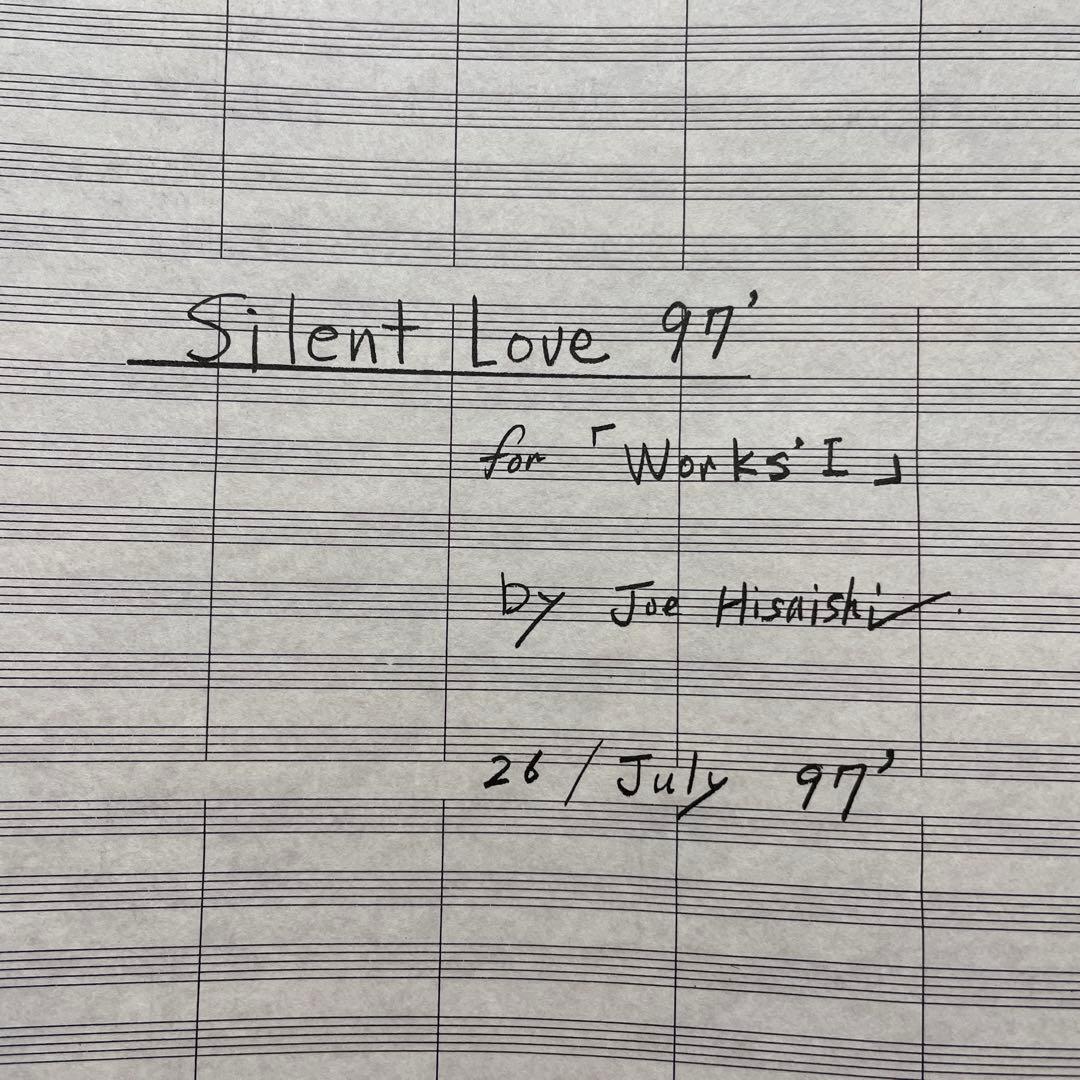 Silent Love 97'
for 「Works' I」
by Joe Hisaishi
26 / July 97'